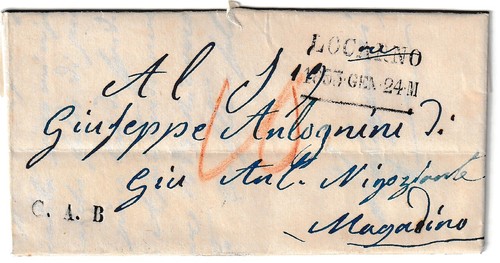 LOCARNO
1855·GEN·24·M
Al Sig
Giuseppe Antognini di
Giu Ant. Nigoziante
C. A. B
Magadino